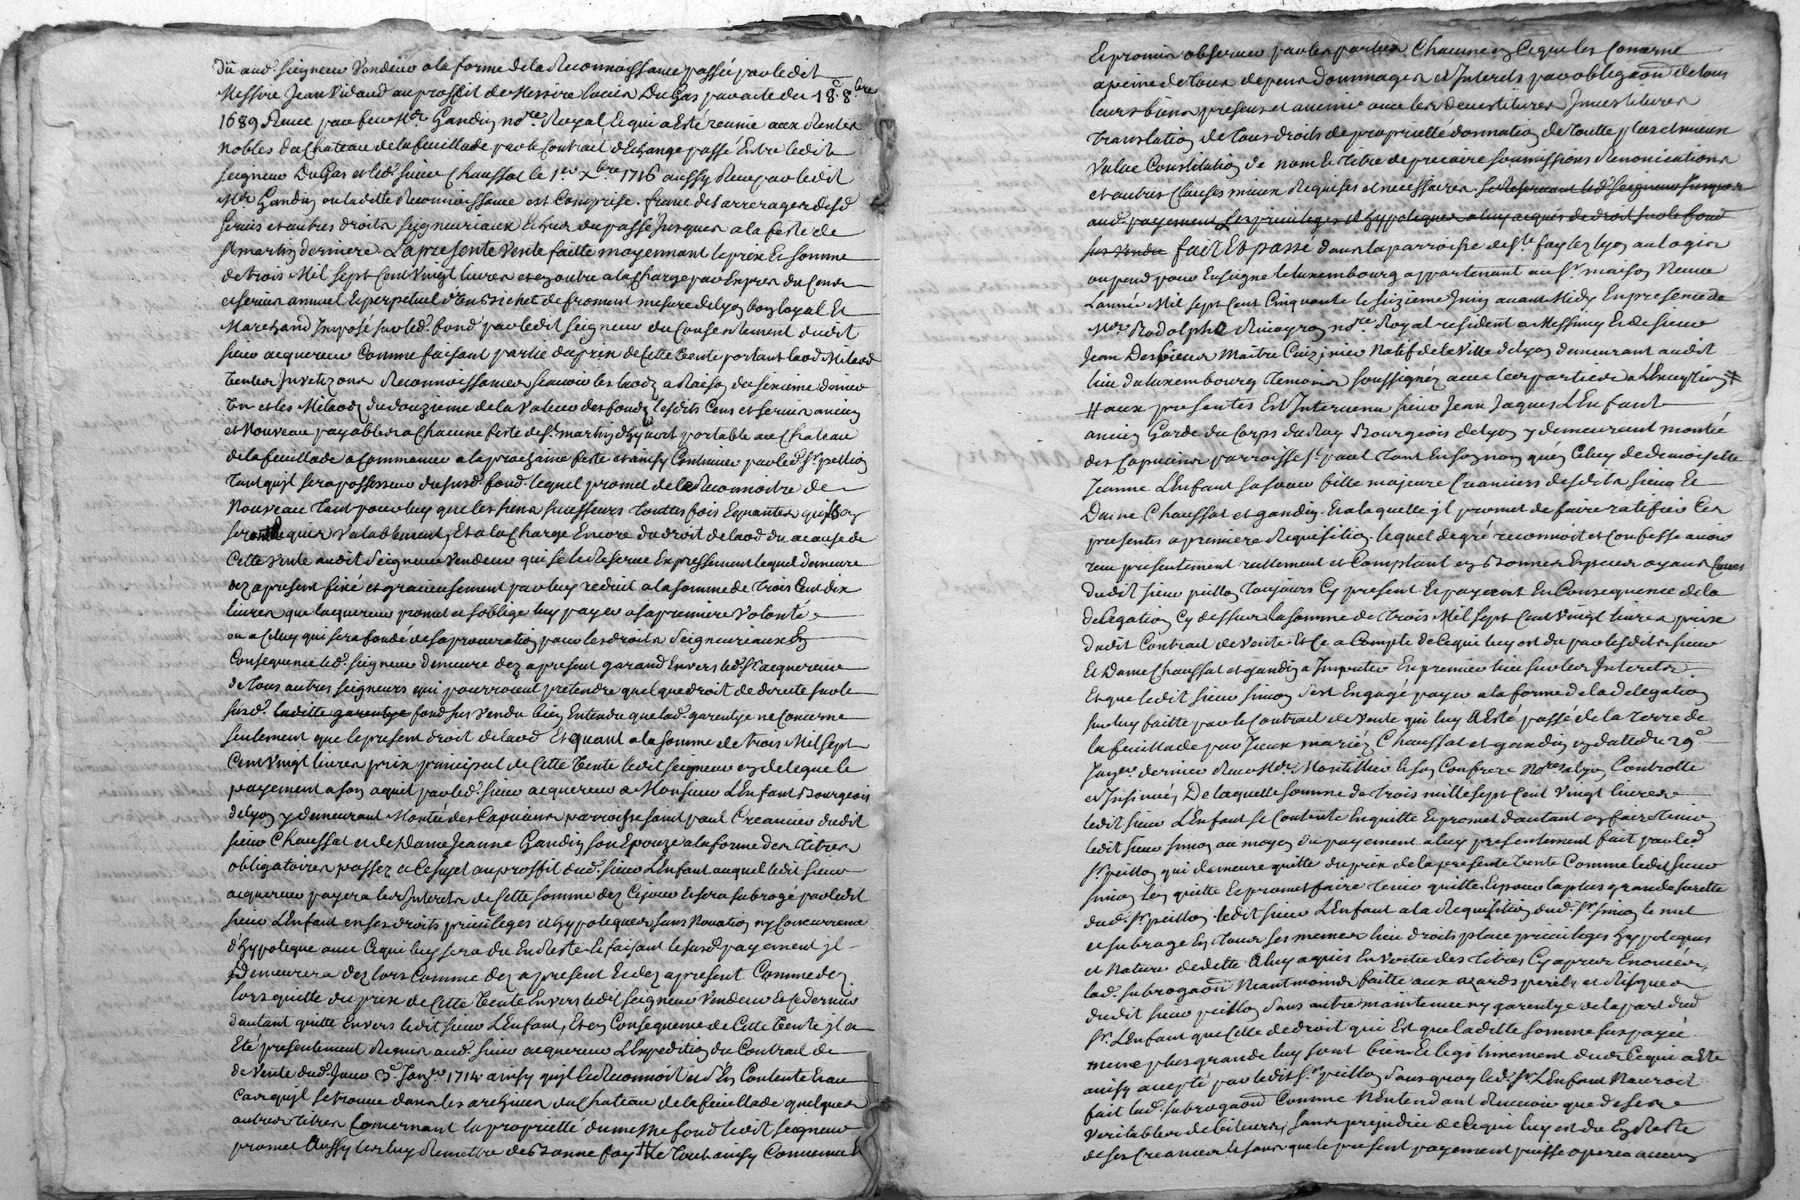 dû aud. seigneur vendeur a la forme de la Reconnoissance passée par ledit
Messire Jean Vidaud au proffit de Messire Lucien Dugas par acte du 18 8bre
1689 Receu par feu Mr Gandin nore Royal, Et qui a Esté reunie aux Rentes
nobles du Chateau de la feuillade par le Contrat d'Echange passé Entre ledit
seigneur Dugas et led. sieur Chaussat le 1er Xbre 1716 aussy Receu par ledit
Mr Gandin ou ladite Reconnoissance est Comprise. franc des arrerages desd
servis et autres droits seigneuriaux Echus du passé Jusques a la feste de
St martin derniere La presente Vente faitte moyennant le prix Et somme
de trois Mil sept Cent Vingt livres et en outre a la Charge par Exprès du Cens
et servis annuel Et perpetuel d'un bichet de froment mesure de Lyon bon loyal Et
Marchand Imposé sur led. fond par ledit seigneur du Consentement dudit
sieur acquereur Comme faisant partie du prix de Cette Vente portant laod Milaod
Reconnoissances scavoir les laodz a Raison du sixieme denier
Et les Milaodz du douzieme de la Valeur des fondz lesdits Cens et servis ancien
et Nouveau payables a Chacune feste de St martin d'hyvert portable au Chateau
de la feuillade a Commancer a la prochaine feste et ainsy Continuer par led. Sr peillon
Tant quil sera possesseur dususd. fond. lequel promet de le Reconnoitre de
Nouveau Tant pour luy que les siens successeurs Touttes fois Et quantes qu'ils en
seront Requis Valablement, Et a la Charge Encore du droit de laod du a cause de
Cette Vente audit Seigneur Vendeur qui se le Reserve Expressement lequel demeure
dez a present fixé et gracieusement par luy reduit a la somme de Trois Cent dix
livres que lacquereur promet et s'oblige luy payer a sa premiere Volonté
ou a Celuy qui sera fondé de sa procuration pour les droits Seigneuriaux En
Consequence led. seigneur demeure dez a present garand Envers led. Sr acquereur
de tous autres seigneurs qui pourroient pretendre quelque droit de directe sur le
susd. laditte garentye fond sus Vendu bien Entendu que lad. garentye ne Concerne
seulement que le present droit de laod Et quant a la somme de trois Mil sept
Cent Vingt livres prix principal de Cette Vente ledit seigneur en delegue le
payement a son aquit par led. sieur acquereur a Monsieur L'Enfant Bourgeois
de Lyon y demeurant Montée des Capucins parroisse saint paul Creancier dudit
sieur Chaussat et de Dame Jeanne Gandin son Epouze a la forme des Titres
obligatoires passez a Ce sujet au proffit dud. sieur L'Enfant auquel ledit sieur
acquereur payera les Interets de Cette somme dez Ce jour Et sera subrogé par ledit
sieur L'Enfant en ses droits privileges et hypoteques sans Novation ny Concurrence
d'hypoteque avec Ce qui luy sera du En Reste Et faisant le susd. payement Il
Demeurera dez lors Comme dez a present Et dez a present Comme dez
lors quitte du prix de Cette Vente Envers ledit seigneur Vendeur Et Ce dernier
d'autant quitte Envers ledit sieur L'Enfant, Et en Consequence de Cette Vente Il a
Eté presentement Remis aud. sieur acquereur L'Expedition du Contrat de
de Vente dud. Jour 3e Janvr 1714 ainsy quil le Reconnoit et s'En Contente Et au
Cas quil se trouve dans les archives du Chateau de la feuillade quelques
autres Titres Concernant la proprietté du mesme fond ledit seigneur
promet Aussy les luy Remettre de bonne foy # Le Tout ainsy Convenu
Et promis observer par les parties Chacune En Ce qui les Concerne
a peine de tous depens dommages et Interets par obligaon de tous
leurs biens presens et avenir avec les devestitures Investitures
Translation de tous droits de proprietté donnation de toutte plus et mieux
Value Constitution de nom Et titre de precaire soumissions Renonciations
et autres Clauses mieux Requises et necessaires se Reservant led. Seigneur Jusques
aud. payement ses privileges et hypoteques a luy acquis de droit sur le fond
sus Vendu fait Et passé dans la parroisse de Ste foy lez Lyon au logis
ou pend pour Enseigne le luxembourg appartenant au Sr maison Neuve
L'année Mil sept Cent Cinquante le sizieme Juin avant Midy En presence de
Mre Rodolphe Rivoyron nore Royal resident a Messimy Et de sieur
Jean Desvieux Maitre Cuizinier Natif de la Ville de Lyon demeurant audit
lieu du luxembourg Temoins soussignéz avec les parties de a L'Exception #
# aux presentes Est Intervenu sieur Jean Jaques L'Enfant
ancien Garde du Corps du Roy Bourgeois de Lyon y demeurant montée
des Capucins parroisse St paul Tant En son nom qu'En Celuy de demoiselle
Jeanne L'Enfant sa soeur fille majeure Creanciers desdits sieur Et
Dame Chaussat et gandin. Et a laquelle Il promet de faire ratifier Ces
presentes a premiere Requisition. lequel de gré reconnoit et Confesse avoir
receu presentement reellement et Comptant en bonnes Especes ayant Cours
dudit sieur peillon Toujours Cy present Et payant En Consequence de la
delegation Cy dessus la somme de Trois Mil sept Cent Vingt livres prix
dudit Contrat de Vente. Et Ce a Compte de Ce qui luy est du par lesdits sieur
Et Dame Chaussat et gandin a Imputer En premier lieu sur les Interets
Et que ledit sieur simon s'est Engagé payer a la forme de la delegation
sur luy faitte par le Contrat de Vente qui luy a Esté passé de la terre de
la feuillade par Iceux mariez Chaussat et gandin en datte du 29e
Janver dernier Receu Mr Montellier Et son Confrere Nores a Lyon Controllé
et Insinué, De laquelle somme de Trois mille sept Cent Vingt livres
ledit sieur L'Enfant se Contente En quitte Et promet d'autant en faire tenir
ledit sieur simon au moyen du payement a luy presentement fait par led.
Sr peillon qui demeure quitte du prix de la presente Vente Comme ledit sieur
simon len quitte Et promet faire tenir quitte. Et pour la plus grande suretté
dud. Sr peillon. ledit sieur L'Enfant a la Requisition dud. Sr simon le met
et subroge En tous ses mesmes lieu droits place privileges hypoteques
et Nature de dette a luy aquis En Vertu des Titres Cy apres Enoncéz,
lad. subrogaon Neantmoins faitte aux perils et Risques
dudit sieur peillon sans autre maintenue ny garentye de la part dud.
Sr. L'Enfant que Celle de droit qui Est que laditte somme sus payée
meme plus grande luy sont bien Et legitimement dues Ce qui a Eté
ainsy accepté par ledit Sr. peillon sans quoy led. Sr L'Enfant N'auroit
fait lad. subrogaon Comme N'Entendant Recevoir que de ses
Veritables debiteurs, sans prejudice de Ce qui luy est du En Reste
de ses Creances Et sans que le present payement puisse operer aucun